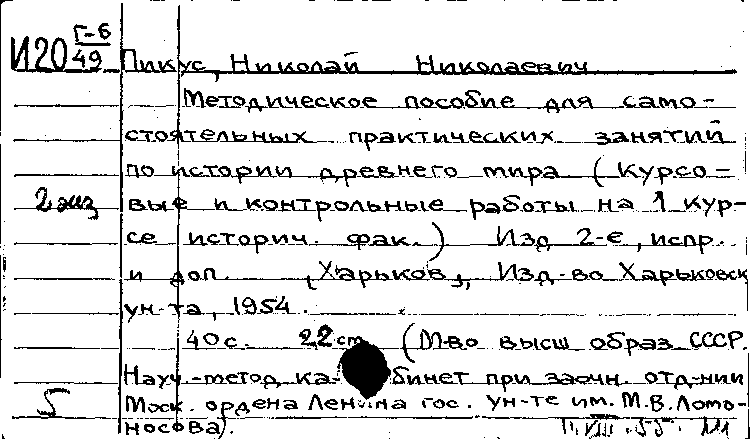 И20 Г-6/49 Пикус, Николай Николаевич
Методическое пособие для само-
стоятельных практических занятий
по истории древнего мира (Курсо-
2 экз вые и контрольные работы на 1 кур-
се историч. фак.) Изд 2-е, испр.
и доп. [Харьков], Изд-во Харьковск
ун-та, 1954.
40с. 22 cm (М-во высш образ СССР.
Науч.-метод ка-бинет при заочн. отд-нии
5 Моск. ордена Ленина гос. ун-те им. М.В. Ломо-
носова).